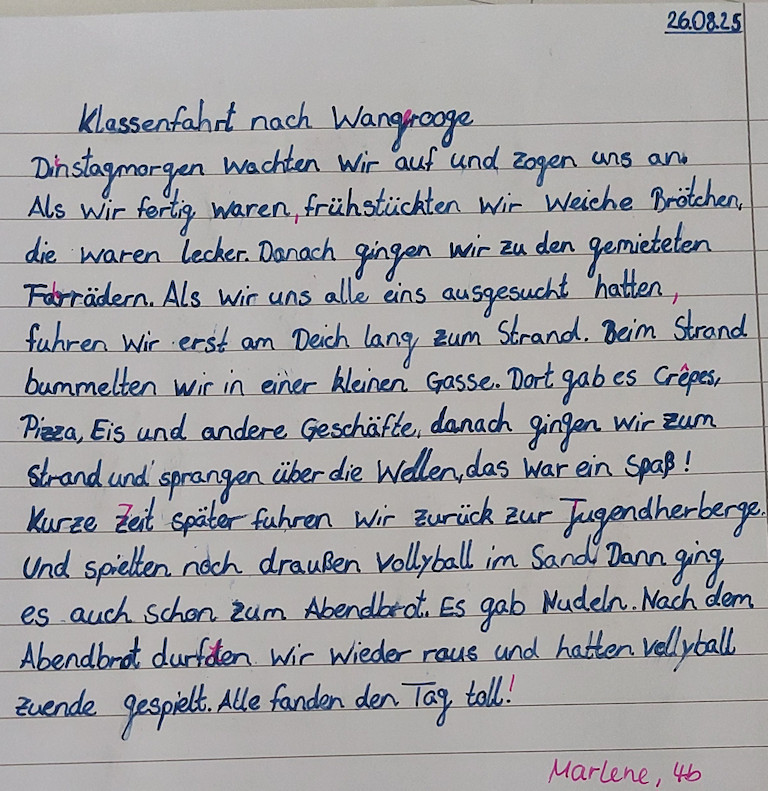 26.08.25
Klassenfahrt nach Wangerooge
Dinstagmorgen wachten wir auf und zogen uns an.
Als wir fertig waren, frühstückten wir weiche Brötchen,
die waren lecker. Danach gingen wir zu den gemieteten
Fahrrädern. Als wir uns alle eins ausgesucht hatten,
fuhren wir erst am Deich lang zum Strand. Beim Strand
bummelten wir in einer kleinen Gasse. Dort gab es Crêpes,
Pizza, Eis und andere Geschäfte, danach gingen wir zum
Strand und sprangen über die Wellen, das war ein Spaß!
Kurze Zeit später fuhren wir zurück zur Jugendherberge.
Und spielten noch draußen Vollyball im Sand. Dann ging
es auch schon zum Abendbrot. Es gab Nudeln. Nach dem
Abendbrot durften wir wieder raus und hatten Vollyball
zuende gespielt. Alle fanden den Tag toll!
Marlene, 4b